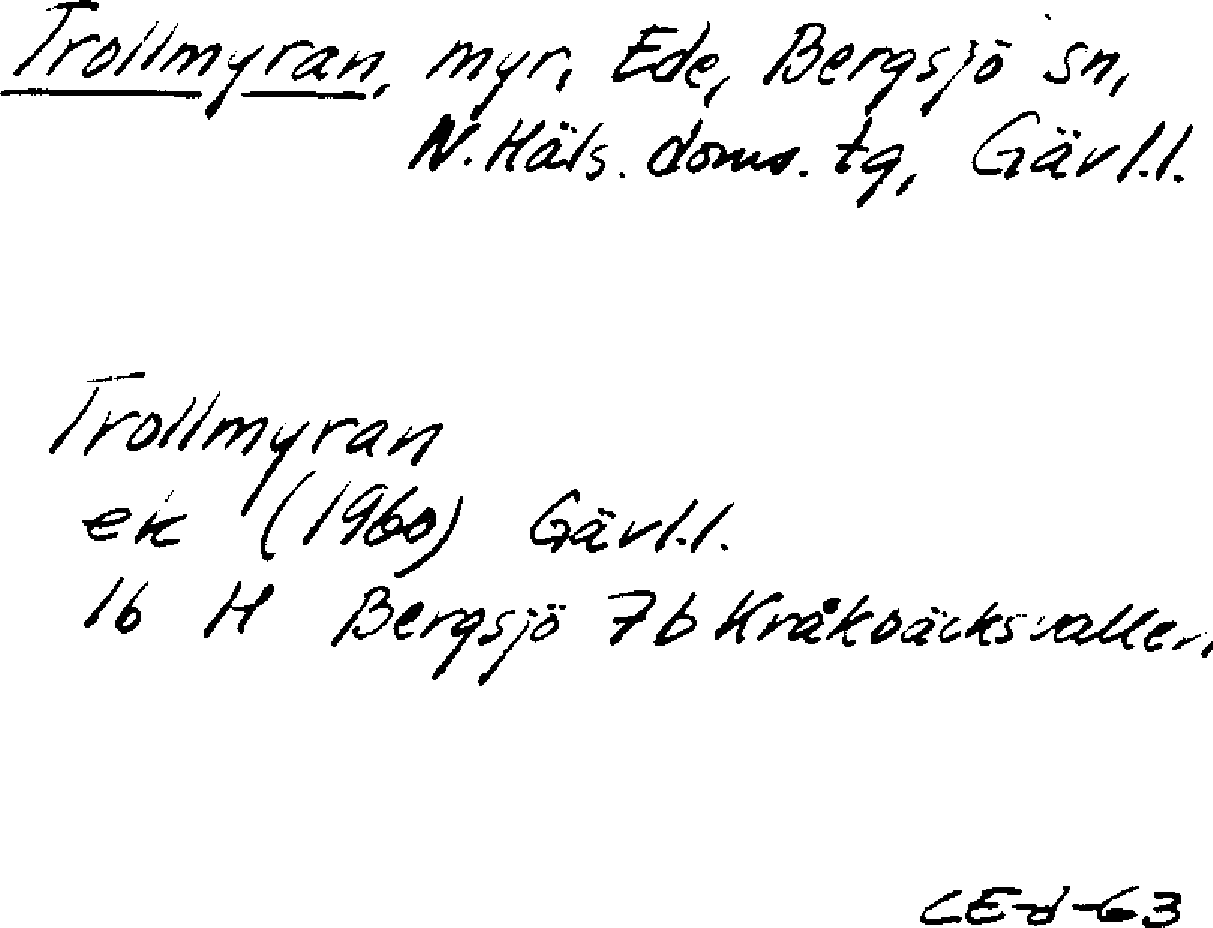 Trollmyran, myr, Ede, Bergsjö sn,
N. Häls. doms. tg, Gävl.l.
Trollmyran
ek (1960) Gävl.l.
16 H Bergsjö 7b Kråkbäcksvallen
CE-d-63